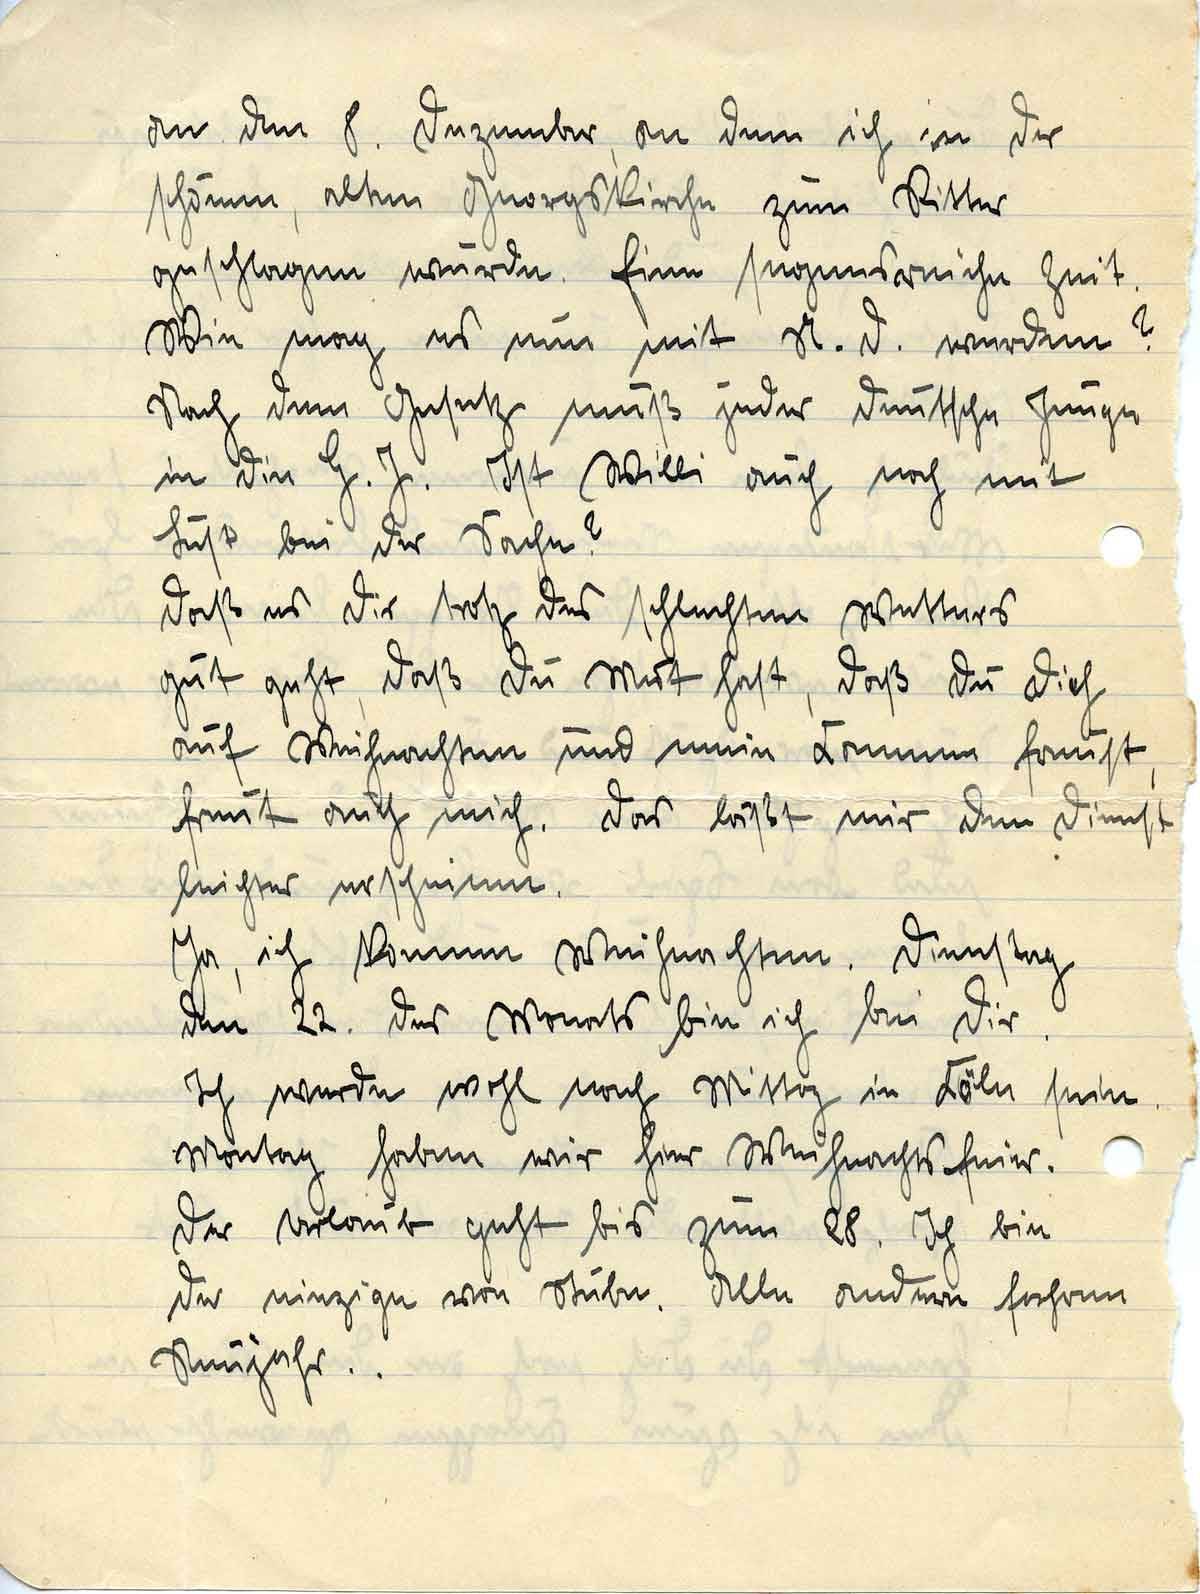 an den 8. Dezember, an dem ich in der
schönen, alten Georgskirche zum Ritter
geschlagen wurde. Eine segensreiche Zeit.
Wie mag es nun mit N. D. werden?
Nach dem Gesetz muß jeder deutsche Junge
in die H. J. Ist Willi auch noch mit
Lust bei der Sache?
Daß es Dir trotz des schlechten Wetters
gut geht, daß Du Mut hast, daß Du Dich
auf Weihnachten und mein Kommen freust,
freut auch mich. Das läßt mir den Dienst
leichter erscheinen.
Ja, ich komme Weihnachten. Dienstag
den 22. des Monats bin ich bei Dir.
Ich werde wohl nach Mittag in Köln sein.
Montag haben wir hier Weihnachtsfeier.
Der Urlaub geht bis zum 28. Ich bin
der einzige von Stube. Alle andern fahren
Neujahr..